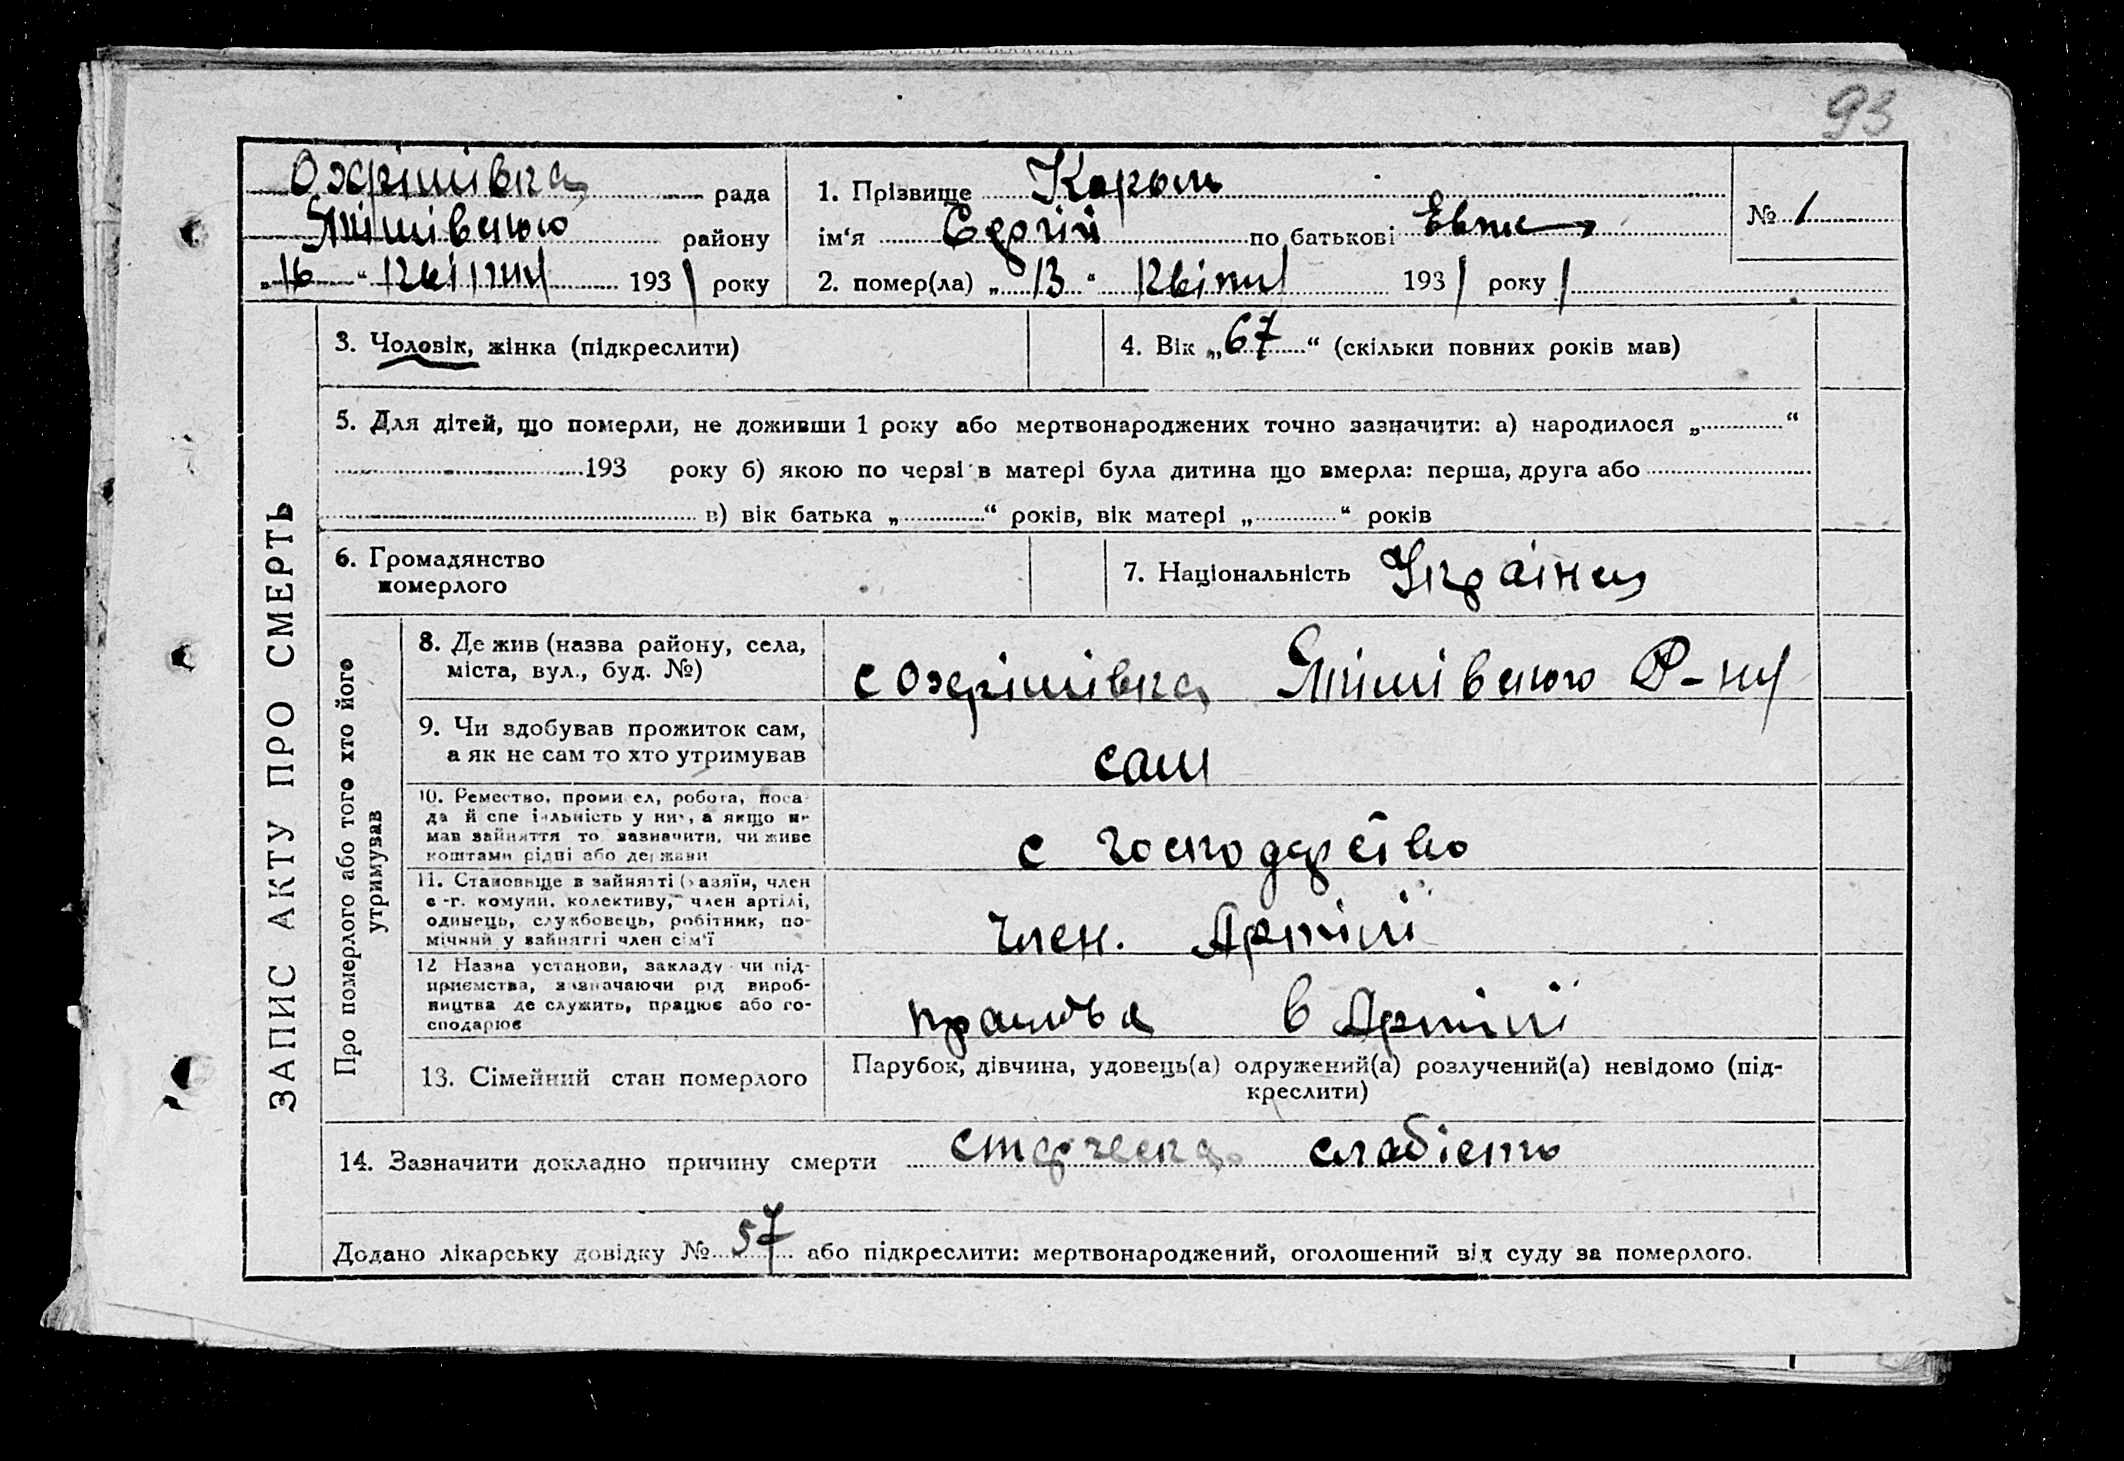 93
Охрімівка рада
Якімівського району
„16“ Квітня 1931 року
1. Прізвище Король
ім‘я Сергій по батькові Евт
2. помер(ла) „13“ Квітня 1931 року
№ 1
ЗАПИС АКТУ ПРО СМЕРТЬ
3. Чоловік, жінка (підкреслити)
4. Вік „67“ (скільки повних років мав)
5. Для дітей, що померли, не доживши 1 року або мертвонароджених точно зазначити: а) народилося „ “
193 року б) якою по черзі в матері була дитина що вмерла: перша, друга або
в) вік батька „ “ років, вік матері „ “ років
6. Громадянство
померлого
7. Національність Українец
Про померлого або того хто його
утримував
8. Де жив (назва району, села,
міста, вул., буд. №)
с Охрімівка Якімівського Р-ну
9. Чи здобував прожиток сам,
а як не сам то хто утримував
сам
10. Ремество, промисел, робота, поса-
да й спеціяльність у них, а якщо не
мав зайняття то зазначити, чи живе
коштами рідні або держави
с господарство
11. Становище в зайнятті (хазяїн, член
с-г. комуни, колективу, член артілі,
одинець, службовець, робітник, по-
мічний у зайнятті член сім‘ї
член. Артілі
12 Назва установи, закладу чи під-
приємства, зазначаючи рід вироб-
ництва де служить, працює або го-
сподарює
в Артілі
13. Сімейний стан померлого
Парубок, дівчина, удовець(а) одружений(а) розлучений(а) невідомо (під-
креслити)
14. Зазначити докладно причину смерти старческа слабість
Додано лікарську довідку № 57 або підкреслити: мертвонароджений, оголошений від суду за померлого.